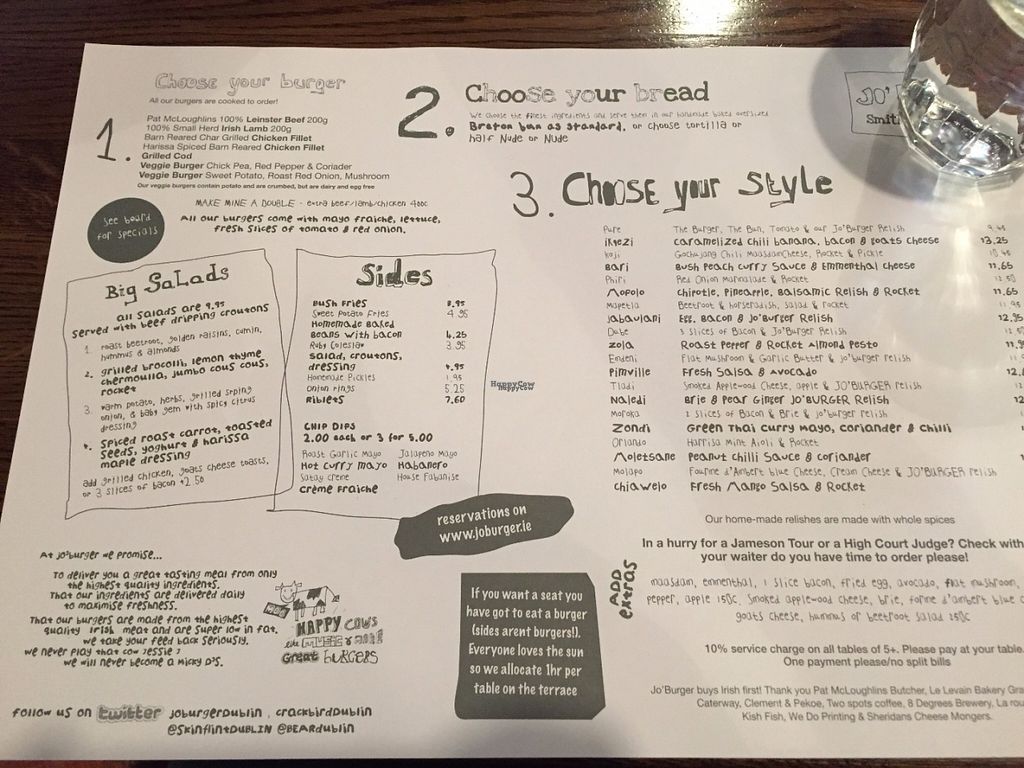 Choose your burger
All our burgers are cooked to order!
1.
Pat McLoughlins 100% Leinster Beef 200g
100% Small Herd Irish Lamb 200g
Barn Reared Char Grilled Chicken Fillet
Harissa Spiced Barn Reared Chicken Fillet
Grilled Cod
Veggie Burger Chick Pea, Red Pepper & Coriader
Veggie Burger Sweet Potato, Roast Red Onion, Mushroom
Our veggie burgers contain potato and are crumbed, but are dairy and egg free
MAKE MINE A DOUBLE - extra beef/lamb/chicken 400c
All our burgers come with mayo fraiche, lettuce,
fresh slices of tomato & red onion.
see board
for specials
2.
Choose your bread
We choose the finest ingredients and serve them in our handmade baked oversized
Breton bun as standard, or choose tortilla or
half Nude or Nude
JO'
Smit
3. Choose your Style
Pure The Burger, The Bun, Tomato & our Jo'Burger Relish 9.95
ikwezi caramelized chili banana, bacon & goats cheese 13.25
koji Gochujang Chili MaasdamCheese, Rocket & Pickle
Bari Bush Peach curry Sauce & Emmenthal cheese 11.65
Phiri Red Onion Marmalade & Rocket
Mopolo chipotle, Pineapple, Balsamic Relish & Rocket 11.65
Mapetla Beetroot & horseradish, salad & rocket 11.95
jabavlani Egg, Bacon & Jo'Burger Relish 12.95
Dube 3 slices of Bacon & Jo'Burger Relish
zola Roast Pepper & Rocket Almond Pesto 11.9
Endeni Flat Mushroom & Garlic Butter & jo'burger relish
Pimville Fresh Salsa & Avocado 12.
Tladi Smoked Applewood Cheese, apple & JO'BURGER relish
Naledi Brie & Pear Ginger JO'BURGER Relish 12
Moroka 2 slices of Bacon & Brie & jo'burger relish
Zondi Green Thai Curry Mayo, coriander & chilli
Orlando Harrisa Mint Aioli & Rocket
Moletsane Peanut chilli Sauce & coriander
Molapo Fourme d'Ambert blue Cheese, Cream Cheese & JO'BURGER relish
chiawelo Fresh Mango Salsa & Rocket
Our home-made relishes are made with whole spices
In a hurry for a Jameson Tour or a High Court Judge? Check with
your waiter do you have time to order please!
ADD extras
maasdam, emmenthal, 1 slice bacon, fried egg, avocado, flat mushroom,
pepper, apple 150c, smoked applewood cheese, brie, forme d'ambert blue c
goats cheese, hummus or beetroot salad 250c
10% service charge on all tables of 5+. Please pay at your table.
One payment please/no split bills
Jo'Burger buys Irish first! Thank you Pat McLoughlins Butcher, Le Levain Bakery Gra
Caterway, Clement & Pekoe, Two spots coffee, 8 Degrees Brewery, La rou
Kish Fish, We Do Printing & Sheridans Cheese Mongers.
Big Salads
all salads are 9.95
served with beef dripping croutons
1. roast beetroot, golden raisins, cumin,
hummus & almonds
2. grilled brocolli, lemon thyme
chermoulla, jumbo cous cous,
rocket
3. warm potato, herbs, grilled spring
onion, & baby gem with spicy citrus
dressing
4. spiced roast carrot, toasted
seeds, yoghurt & harissa
maple dressing
add grilled chicken, goats cheese toasts,
or 3 slices of bacon +2.50
Sides
Bush Fries 3.95
Sweet Potato Fries 4.95
Homemade Baked
Beans with bacon 4.25
Ruby Coleslaw 3.95
salad, croutons,
dressing 4.95
Homemade Pickles 1.95
Onion rings 5.25
Riblets 7.60
CHIP DIPS
2.00 each or 3 for 5.00
Roast Garlic Mayo Jalapeno Mayo
Hot curry mayo Habanero
Satay creme House Fabanise
creme fraiche
HappyCow
HappyCow
reservations on
www.joburger.ie
At jo'burger we promise...
To deliver you a great tasting meal from only
the highest quality ingredients.
That our ingredients are delivered daily
to maximise freshness.
That our burgers are made from the highest
quality Irish meat and are super low in fat.
we take your feed back seriously.
we never play that cow jessie J
we will never become a Micky D's.
MOO
HAPPY COWS
like MUSIC &
Great BURGERS
If you want a seat you
have got to eat a burger
(sides arent burgers!).
Everyone loves the sun
so we allocate 1hr per
table on the terrace
follow us on twitter joburgerDublin , crackbirdDublin
@SkinflintDUBLIN @BEARdublin